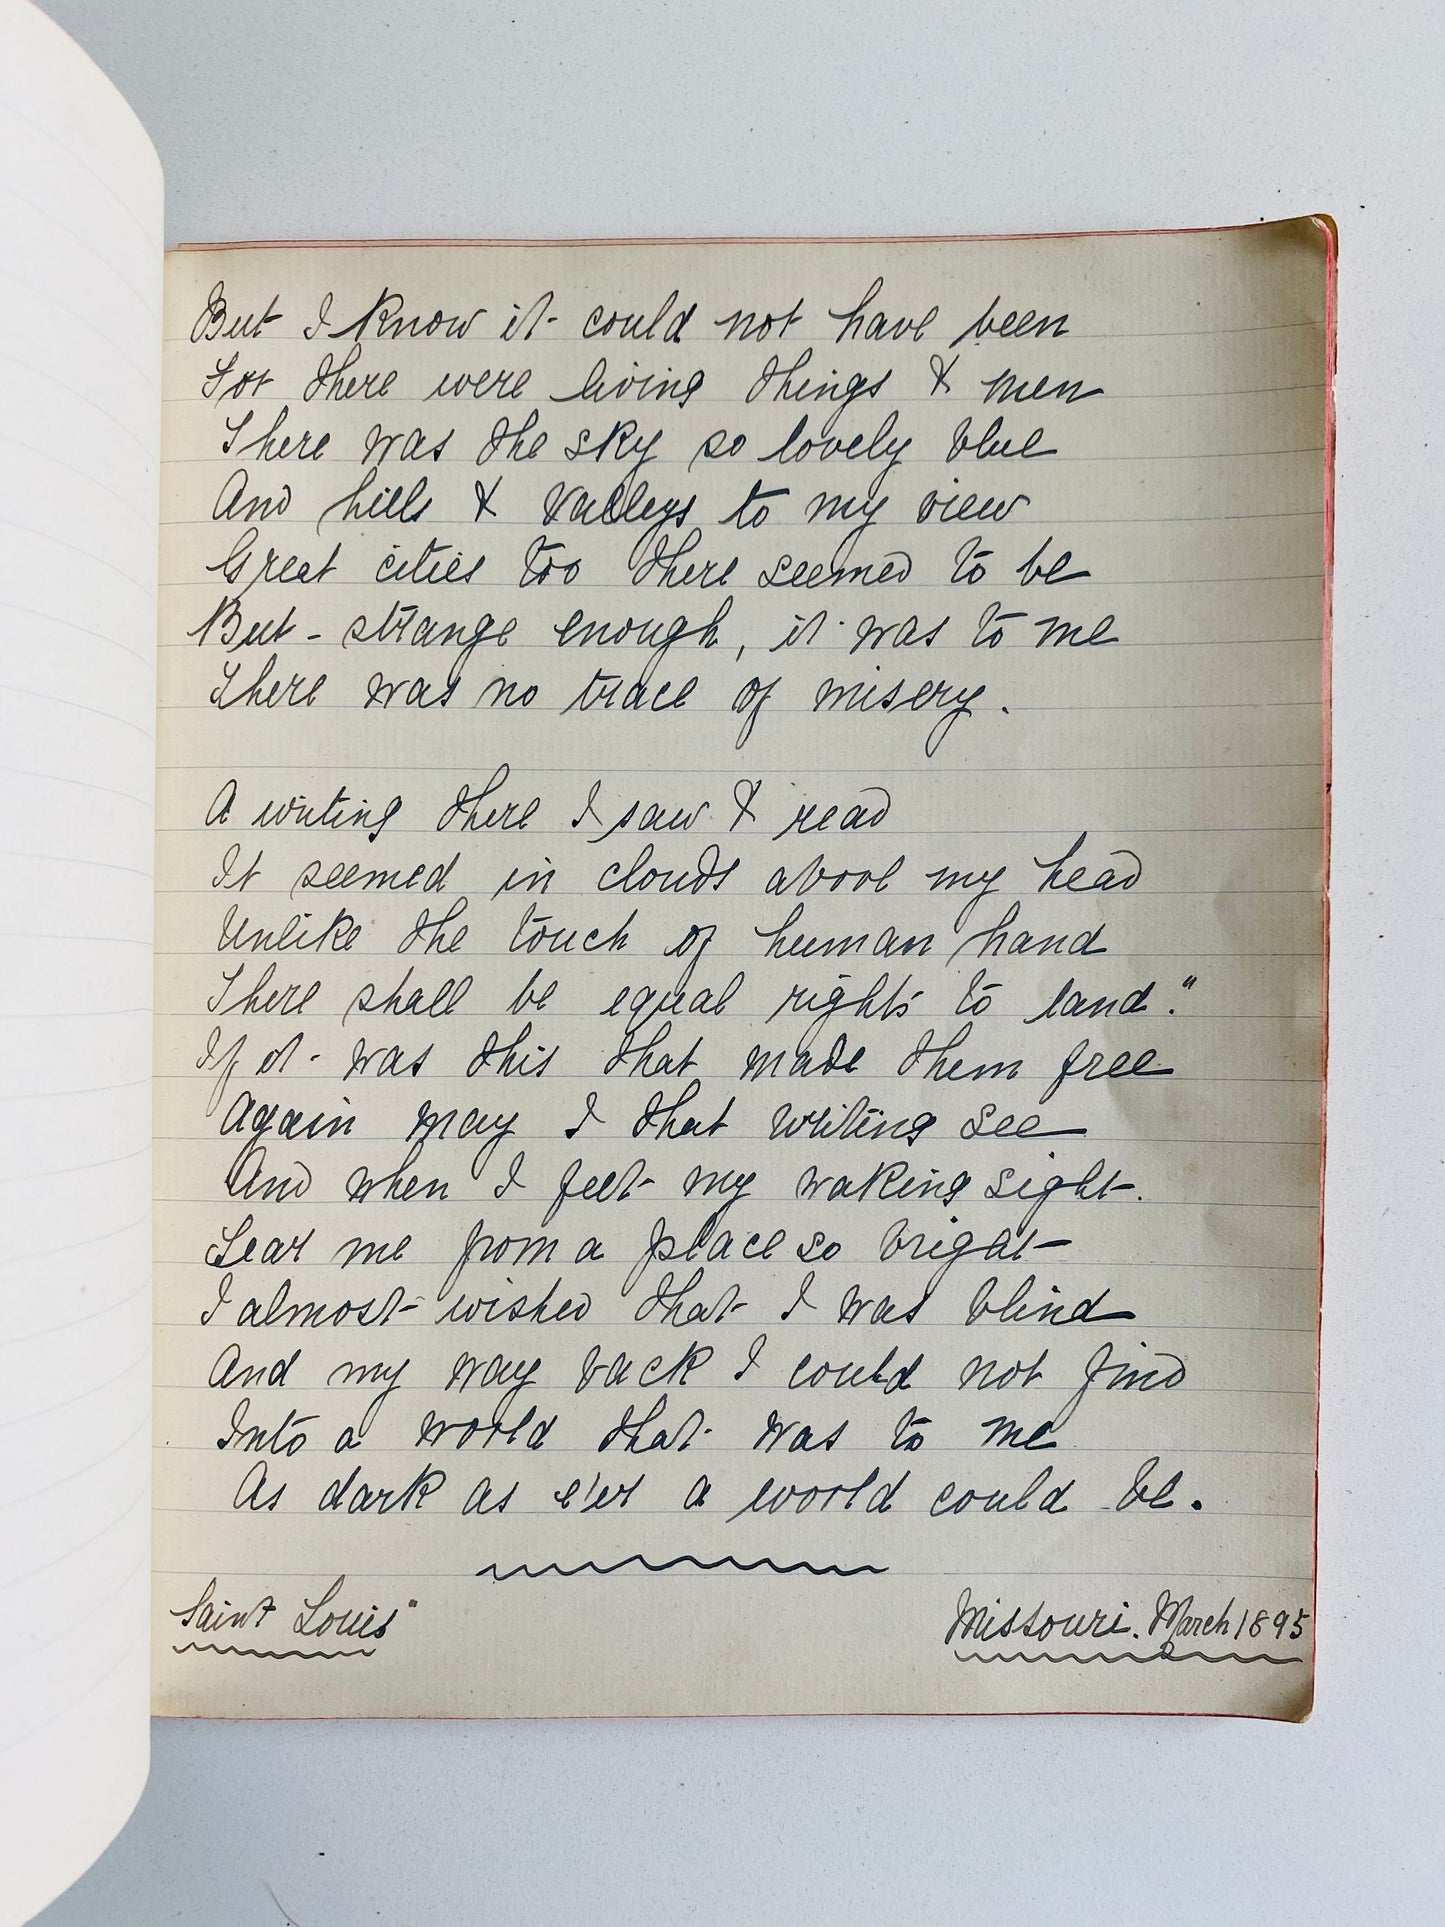 But I know it could not have been
For there were living things & men
There was the sky so lovely blue
And hills & valleys to my view
Great cities too there seemed to be
But - strange enough, it was to me
There was no trace of misery.
A writing there I saw & read
It seemed in clouds above my head
Unlike the touch of human hand
There shall be equal rights to land."
If it was this that made them free
Again may I that writing see
And when I felt my waking sight.
Tear me from a place so bright
I almost wished that I was blind
And my way back I could not find
Into a world that was to me
As dark as e'er a world could be.
Saint Louis" Missouri. March 1895